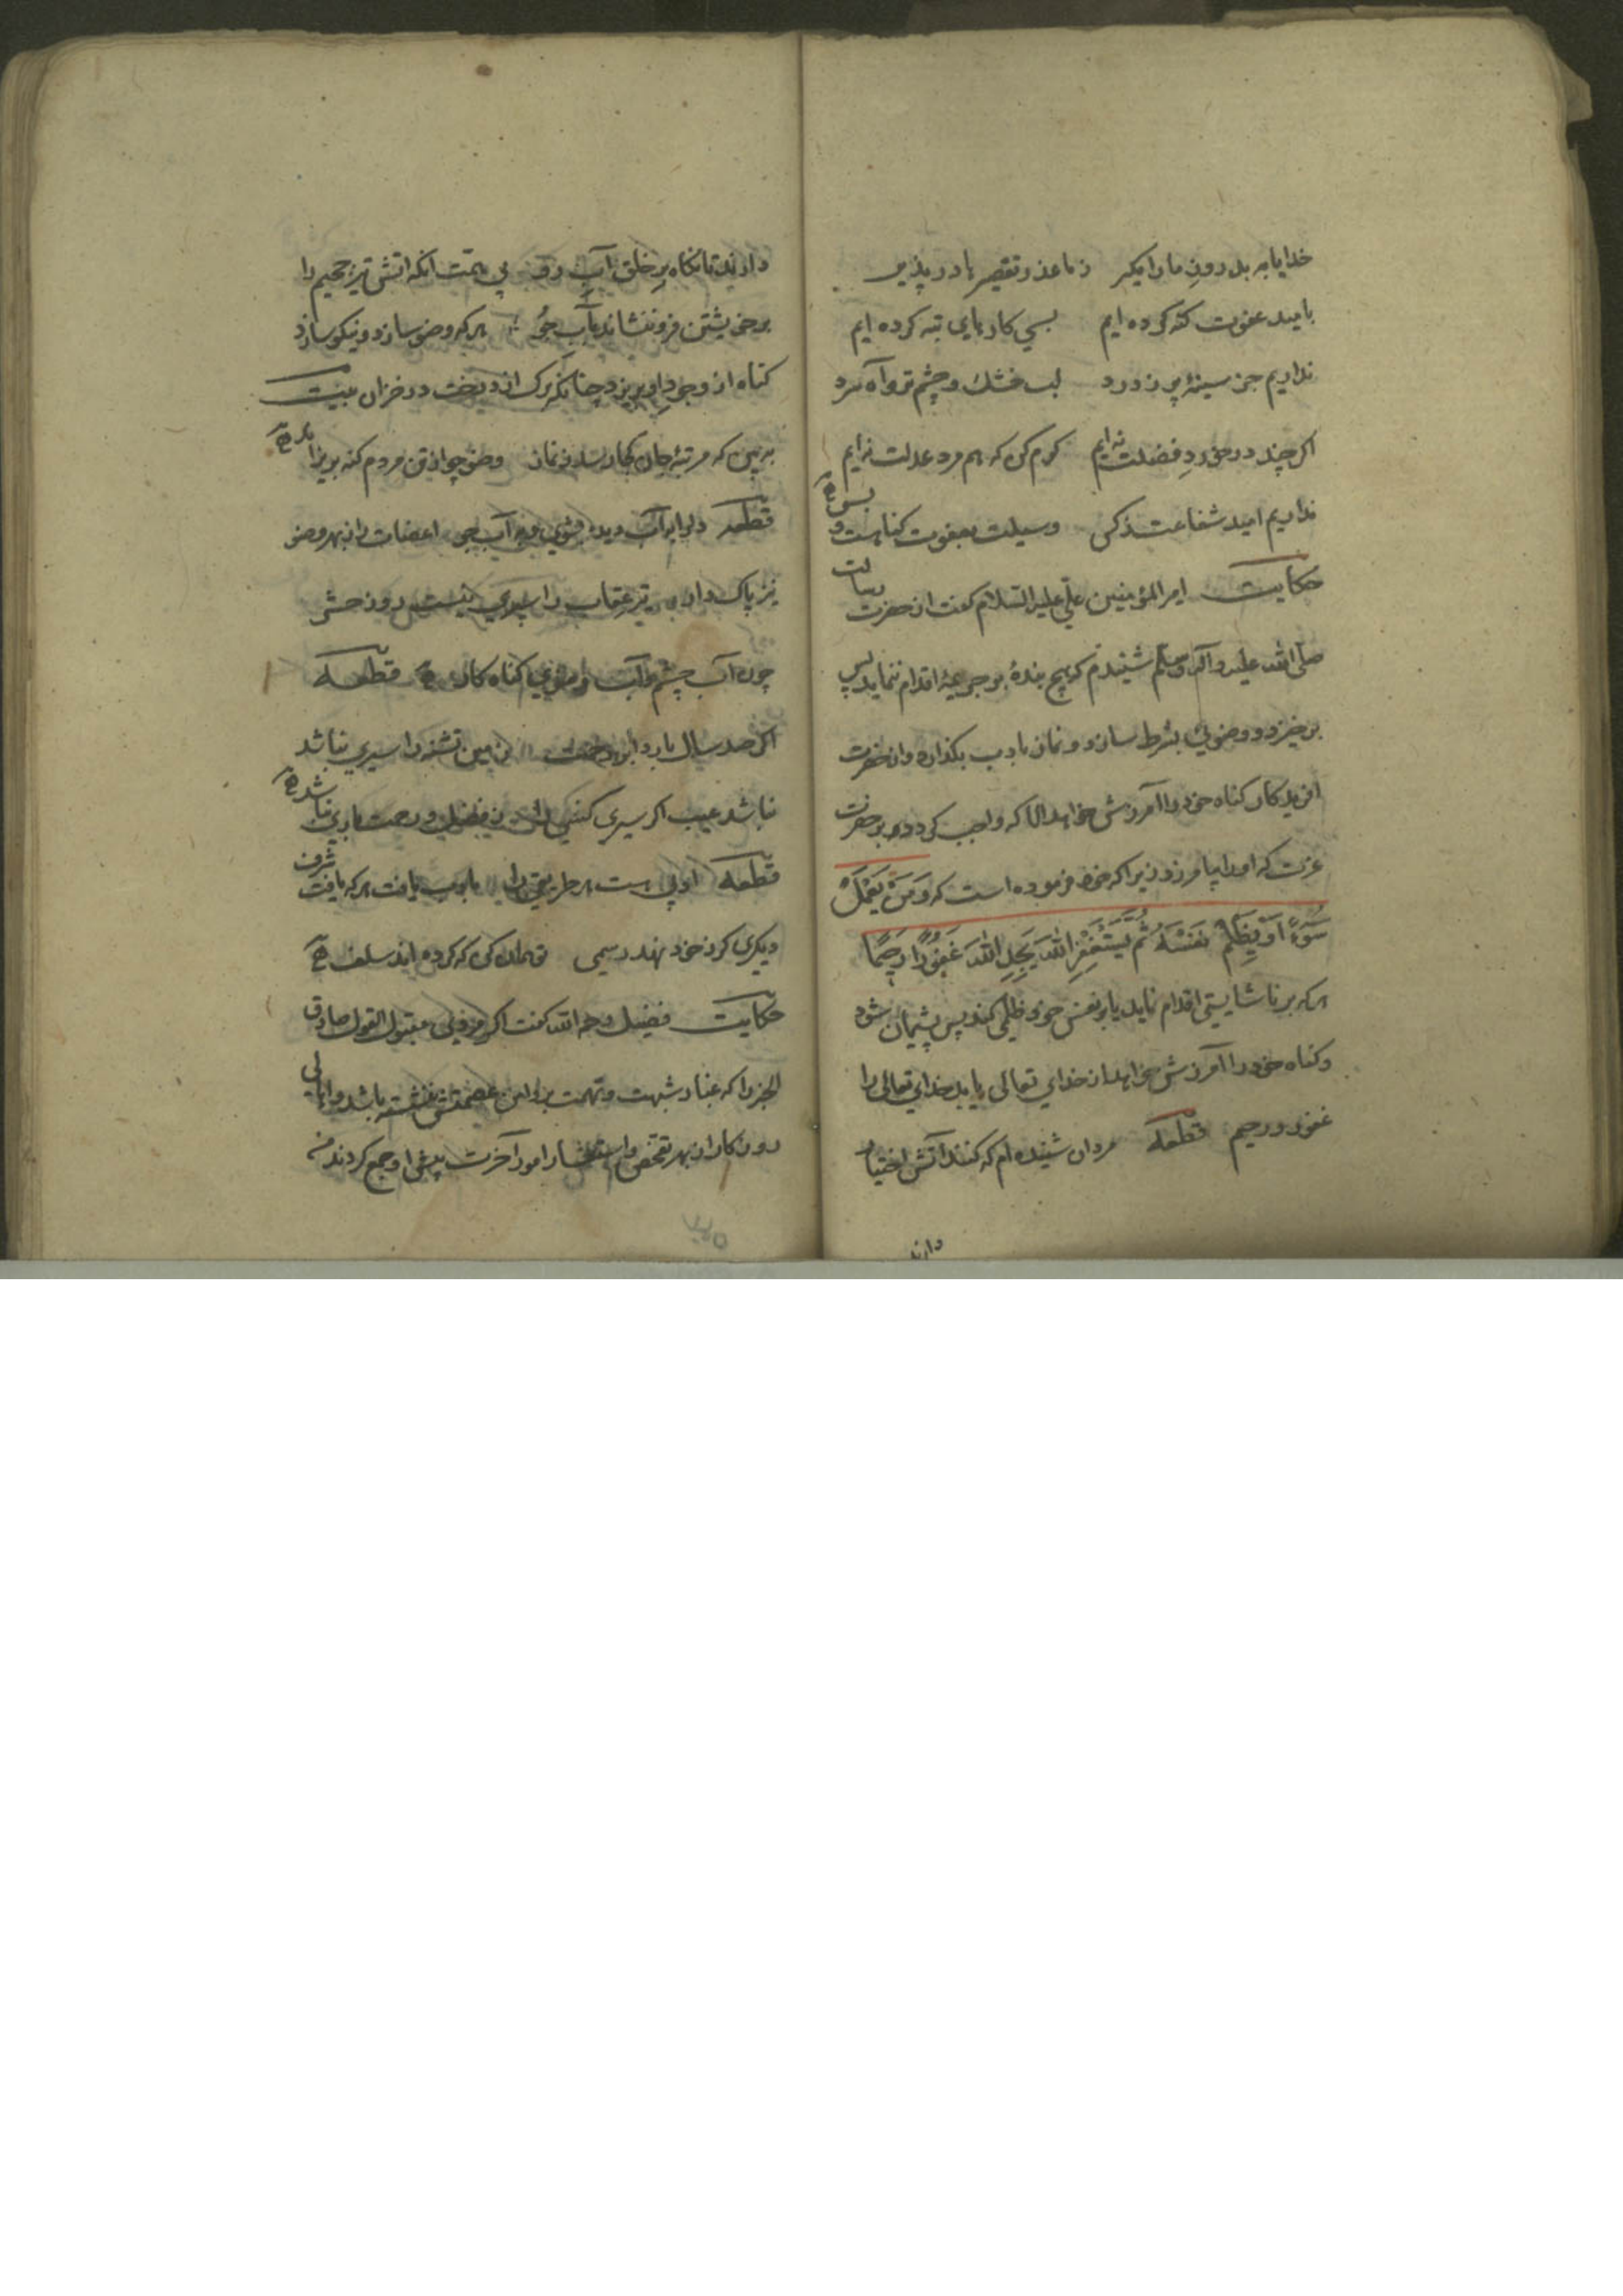 خدایا به بد روز ما را مگیر ز ما عذر تقصیر ما در پذیر
بامید عفوت کنه کرده ایم بسی کارهای تبه کرده ایم
نداریم جز سینهٔ پر ز درد لب خشک و چشم تر و آه سرد
اکر چند در خورد فضلت نه ایم کرم کن که هم مرد عدلت نه ایم
نداریم امید شفاعت ز کس وسیلت بعفوت کناهست و بس
حکایت امیر المؤمنین علی علیه السلام کفت از حضرت رسالت
صلی الله علیه وآله وسلم شنیدم که هیچ بندهٔ بر جریمهٔ اقدام ننماید پس
برخیزد و وضوئی بشرط سازد و نماز بادب بکذارد و از حضرت
افریدکار کناه خود را آمرزش خواهد الا که واجب کردد بر حضرت
عزت که او را بیامرزد زیرا که خود فرموده است که وَمَنْ يَعْمَلْ
سُوءًا اَوْ يَظْلِمْ نَفْسَهُ ثُمَّ يَسْتَغْفِرِ اللهَ يَجِدِ اللهَ غَفُورًا رَحِيمًا
هر که بر ناشایستی اقدام نماید یا بر نفس خود ظلمی کند پس پشیمان شود
و کناه خود را آمرزش خواهد از خدای تعالی یابد خدای تعالی را
غفور و رحیم قطعه مردان شنیده ام که کنند آتش اختیار
دارند
دارند تا نکاه بر خلق آب رو بی همت آنکه اتش تیز جحیم را
بر خویشتن فرو ننشاند بآب جو هر که وضو سازد و نیکو سازد
کناه از وجود او بریزد چنانکه برک از درخت در خزان بیت
به بین که مرتبهٔ جان کجا رسد ز نماز وضو چو از تن مردم کنه بریزاند
قطعه دل را بآب دیده بشوی و بآب جو اعضات را ز بهر وضو
نیز پاک دار تیر عقاب را سپری نیست روز حشر
چون آب چشم و آب وضوی کناه کار قطعه
اکر صد سال بارد ابر رحمت زمین تشنه را سیری نباشد
نباشد عیب اکر سیری کسی را ز فضل و رحمت باری نباشد
قطعه ادبی هست هر طریقی را بادب یافت هر که یافت شرف
دیکری کر ز خود نهد رسمی تو همان کن که کرده اند سلف
حکایت فضیل رحمه الله کفت اکر مردی مقبول القول صادق
الخبر را که غبار شبهت و تهمت بر دامن عصمتش ننشسته باشد و اهالی
روزکار از بهر تفحص و استفسار امور آخرت پیش او جمع کردند